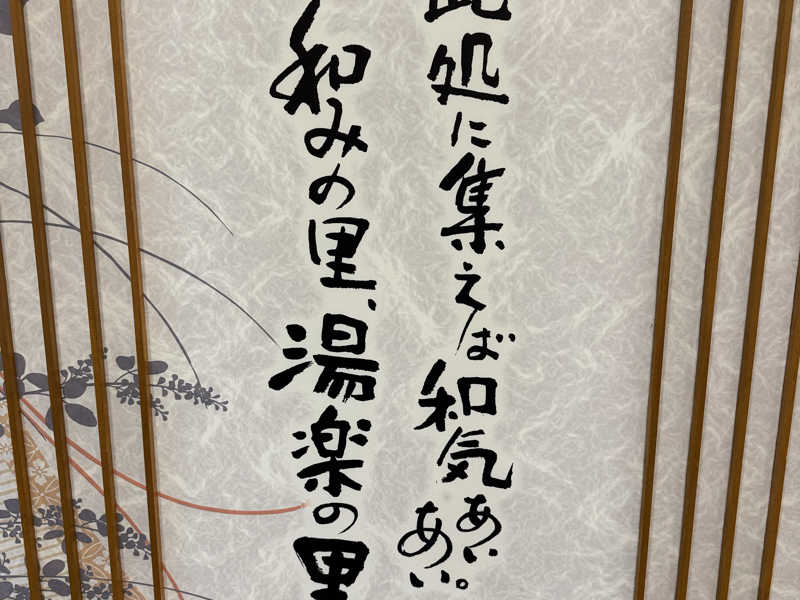 此処に集えば和気あいあい。
和みの里、湯楽の里